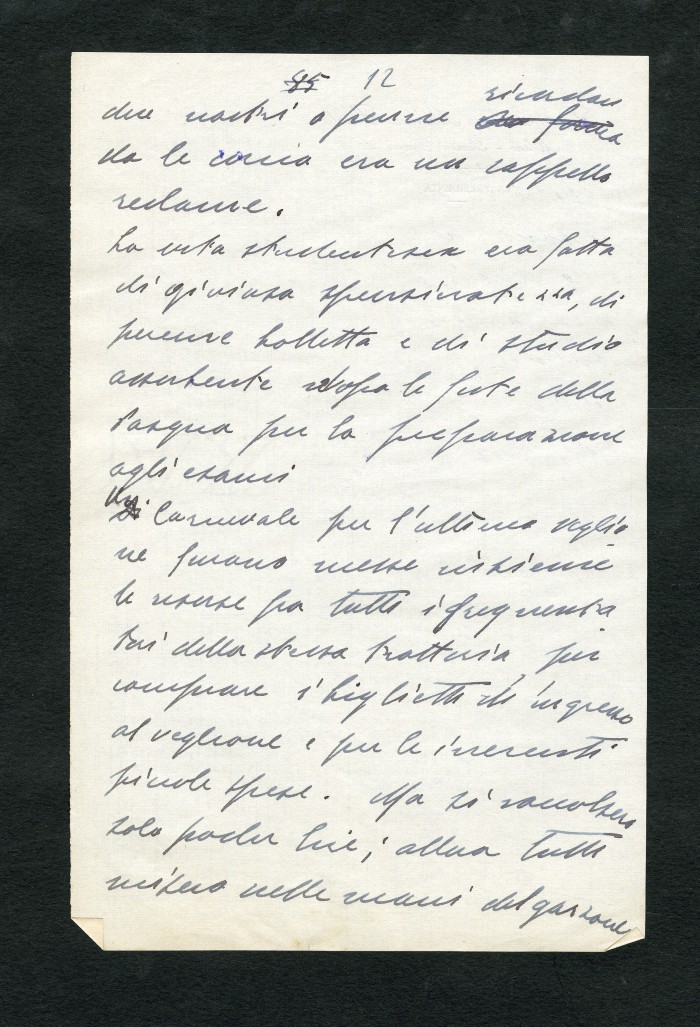 85 12
due nastri a pennee ricadan
da le era un cappello
reclame.
La vita studentesca era fatta
di gioiosa spensieratezza, di
perenne bolletta e di studio
assorbente dopo le feste della
Pasqua per la preparazione
agli esami
Di Carnevale per l'ultimo veglio
ne furono messe insieme
le risorse fra tutti i frequenta
tori della stessa trattoria, per
comprare i biglietti di ingresso
al veglione e per le inerenti
piccole spese. Ma si raccolsero
solo poche lire; allora tutti
misero nelle mani del garzone